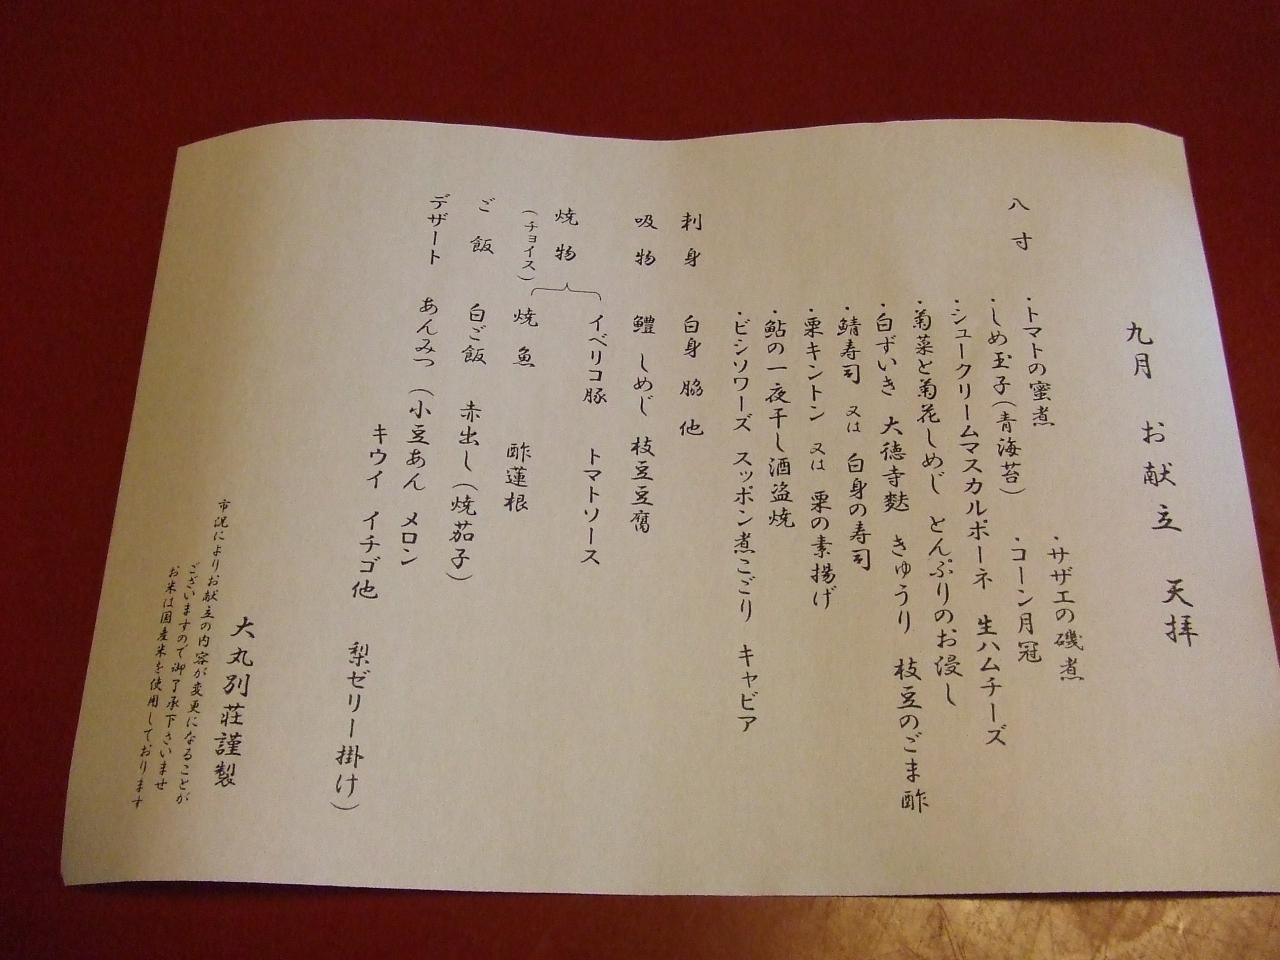 九月 お献立 天拝
八寸 ・トマトの蜜煮 ・サザエの磯煮
・しめ玉子（青海苔） ・コーン月冠
・シュークリームマスカルポーネ 生ハムチーズ
・菊菜と菊花しめじ とんぶりのお浸し
・白ずいき 大徳寺麩 きゅうり 枝豆のごま酢
・鯖寿司 又は 白身の寿司
・栗キントン 又は 栗の素揚げ
・鮎の一夜干し酒盗焼
・ビシソワーズ スッポン煮こごり キャビア
刺身 白身 脇 他
吸物 鱧 しめじ 枝豆豆腐
焼物 イベリコ豚 トマトソース
（チョイス） 焼魚 酢蓮根
ご飯 白ご飯 赤出し（焼茄子）
デザート あんみつ（小豆あん メロン
キウイ イチゴ他 梨ゼリー掛け）
大丸別荘謹製
市況によりお献立の内容が変更になることが
ございますので御了承下さいませ
お米は国産米を使用しております